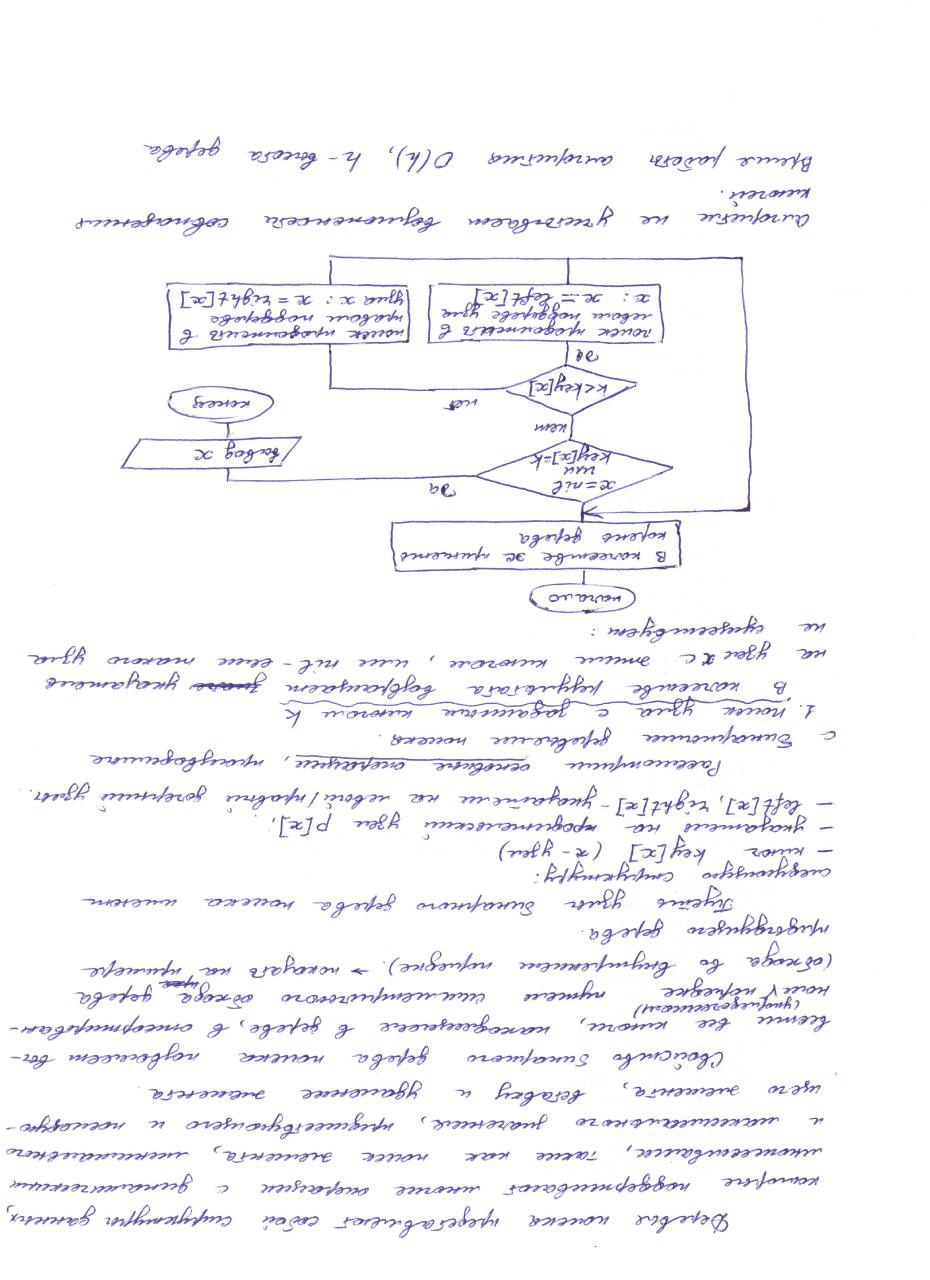 Деревья поиска представляют собой структуры данных,
которые поддерживают многие операции с динамическими
множествами, такие как поиск элемента, минимального
и максимального значения, предшествующего и последую-
щего элемента, вставку и удаление элемента.
Свойство бинарного дерева поиска позволяет вы-
вести все ключи, находящиеся в дереве, в отсортирован-
(упорядоченном)
ном порядке путем симметричного обхода дерева
(обхода во внутреннем порядке). → показать на примере
предыдущего дерева.
Пусть узлы бинарного дерева поиска имеют
следующую структуру:
– ключ key[x] (x-узел)
– указатель на родительский узел p[x];
– left[x], right[x] - указатели на левый/правый дочерний узлы.
Рассмотрим основные операции, производимые
с бинарными деревьями поиска.
1. поиск узла с заданным ключом k
В качестве результата возвращает указатель
на узел x с этим ключом, или nil - если такого узла
не существует:
начало
В качестве x принять
корень дерева
x=nil
или
key[x]=k
да
вывод x
конец
нет
k<key[x]
нет
да
поиск продолжить в
левом поддереве узла
x: x = left[x]
поиск продолжить в
правом поддереве
узла x: x = right[x]
Алгоритм не учитывает возможности совпадения
ключей.
Время работы алгоритма O(h), h - высота дерева